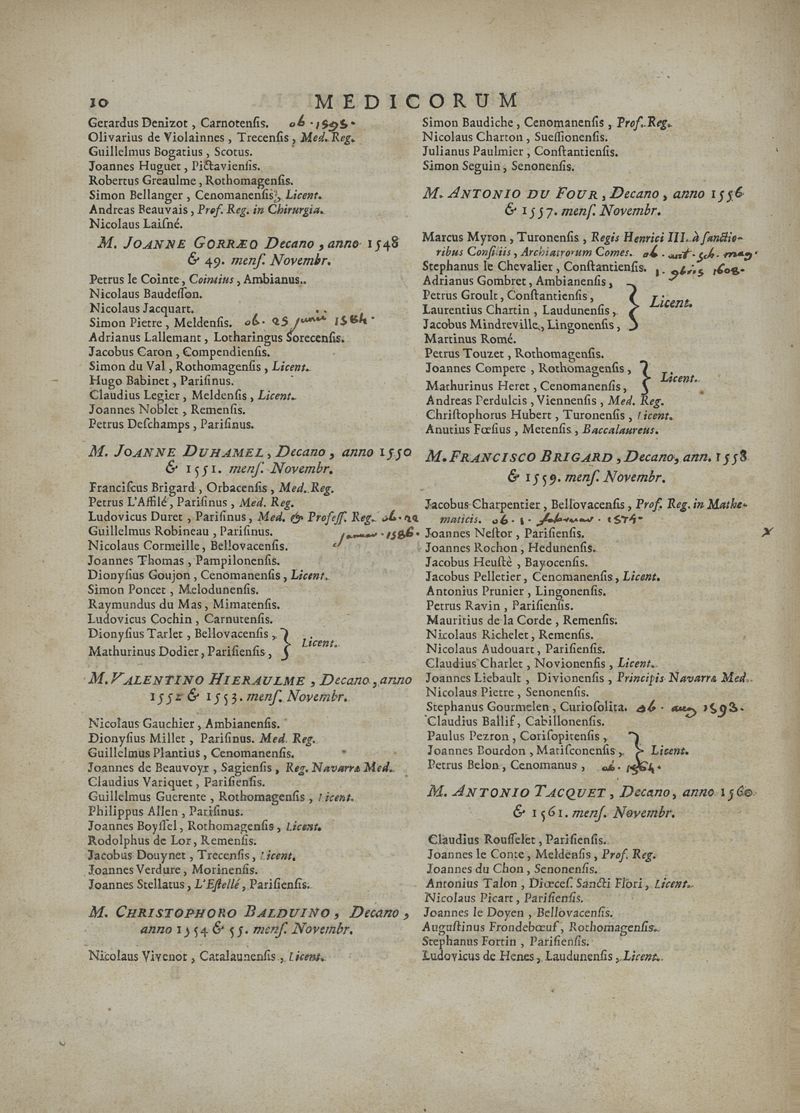 10
MEDICORUM
Gerardus Denizot , Carnotenſis. ob · 1595 ·
Olivarius de Violainnes , Trecenſis , Med. Reg.
Guillelmus Bogatius , Scotus.
Joannes Huguet , Pictavienſis.
Robertus Greaulme , Rothomagenſis.
Simon Bellanger , Cenomanenſis , Licent.
Andreas Beauvais , Prof. Reg. in Chirurgia.
Nicolaus Laiſné.
M. JOANNE GORRÆO Decano , anno 1548
& 49. menſ. Novembr.
Petrus le Cointe , Cointius , Ambianus.
Nicolaus Baudeſſon.
Nicolaus Jacquart.
Simon Pietre , Meldenſis. ob · 25 1584 ·
Adrianus Lallemant , Lotharingus Sorecenſis.
Jacobus Caron , Compendienſis.
Simon du Val , Rothomagenſis , Licent.
Hugo Babinet , Pariſinus.
Claudius Legier , Meldenſis , Licent.
Joannes Noblet , Remenſis.
Petrus Deſchamps , Pariſinus.
M. JOANNE DUHAMEL , Decano , anno 1550
& 1551. menſ. Novembr.
Franciſcus Brigard , Orbacenſis , Med. Reg.
Petrus L'Affilé , Pariſinus , Med. Reg.
Ludovicus Duret , Pariſinus , Med. & Profeſſ. Reg. ob · 22
Guillelmus Robineau , Pariſinus. 1586 ·
Nicolaus Cormeille , Bellovacenſis.
Joannes Thomas , Pampilonenſis.
Dionyſius Goujon , Cenomanenſis , Licent.
Simon Poncet , Melodunenſis.
Raymundus du Mas , Mimatenſis.
Ludovicus Cochin , Carnutenſis.
Dionyſius Tarlet , Bellovacenſis , } Licent.
Mathurinus Dodier , Pariſienſis ,
M. VALENTINO HIERAULME , Decano , anno
1552 & 1553. menſ. Novembr.
Nicolaus Gauchier , Ambianenſis.
Dionyſius Millet , Pariſinus. Med. Reg.
Guillelmus Plantius , Cenomanenſis.
Joannes de Beauvoyr , Sagienſis , Reg. Navarræ Med.
Claudius Variquet , Pariſienſis.
Guillelmus Guerente , Rothomagenſis , Licent.
Philippus Allen , Pariſinus.
Joannes Boyſſel , Rothomagenſis , Licent.
Rodolphus de Lor , Remenſis.
Jacobus Douynet , Trecenſis , Licent.
Joannes Verdure , Morinenſis.
Joannes Stellatus , L'Eſtellé , Pariſienſis.
M. CHRISTOPHORO BALDUINO , Decano ,
anno 1554 & 55. menſ. Novembr.
Nicolaus Vivenot , Catalaunenſis , Licent.
Simon Baudiche , Cenomanenſis , Prof. Reg.
Nicolaus Charton , Sueſſionenſis.
Julianus Paulmier , Conſtantienſis.
Simon Seguin , Senonenſis.
M. ANTONIO DU FOUR , Decano , anno 1556
& 1557. menſ. Novembr.
Marcus Myron , Turonenſis , Regis Henrici III. à ſanctio-
ribus Conſiliis , Archiatrorum Comes. ob ·
Stephanus le Chevalier , Conſtantienſis. 1608 ·
Adrianus Gombret , Ambianenſis ,
Petrus Groult , Conſtantienſis , } Licent.
Laurentius Chartin , Laudunenſis ,
Jacobus Mindreville , Lingonenſis ,
Martinus Romé.
Petrus Touzet , Rothomagenſis.
Joannes Compere , Rothomagenſis , } Licent.
Mathurinus Heret , Cenomanenſis ,
Andreas Perdulcis , Viennenſis , Med. Reg.
Chriſtophorus Hubert , Turonenſis , Licent.
Anutius Fœſius , Metenſis , Baccalaureus.
M. FRANCISCO BRIGARD , Decano , ann. 1558
& 1559. menſ. Novembr.
Jacobus Charpentier , Bellovacenſis , Prof. Reg. in Mathe-
maticis. ob · 1 · 1574
Joannes Neſtor , Pariſienſis. X
Joannes Rochon , Hedunenſis.
Jacobus Heuſtè , Bayocenſis.
Jacobus Pelletier , Cenomanenſis , Licent.
Antonius Prunier , Lingonenſis.
Petrus Ravin , Pariſienſis.
Mauritius de la Corde , Remenſis.
Nicolaus Richelet , Remenſis.
Nicolaus Audouart , Pariſienſis.
Claudius Charlet , Novionenſis , Licent.
Joannes Liebault , Divionenſis , Principis Navarræ Med.
Nicolaus Pietre , Senonenſis.
Stephanus Gourmelen , Curioſolita. ob · aug 1593 ·
Claudius Ballif , Cabillonenſis.
Paulus Pezron , Coriſopitenſis ,
Joannes Bourdon , Matiſconenſis , } Licent.
Petrus Belon , Cenomanus , ob · 1564 ·
M. ANTONIO TACQUET , Decano , anno 1560
& 1561. menſ. Novembr.
Claudius Rouſſelet , Pariſienſis.
Joannes le Conte , Meldenſis , Prof. Reg.
Joannes du Chon , Senonenſis.
Antonius Talon , Diœceſ. Sancti Flori , Licent.
Nicolaus Picart , Pariſienſis.
Joannes le Doyen , Bellovacenſis.
Auguſtinus Frondebœuf , Rothomagenſis.
Stephanus Fortin , Pariſienſis.
Ludovicus de Henes , Laudunenſis , Licent.